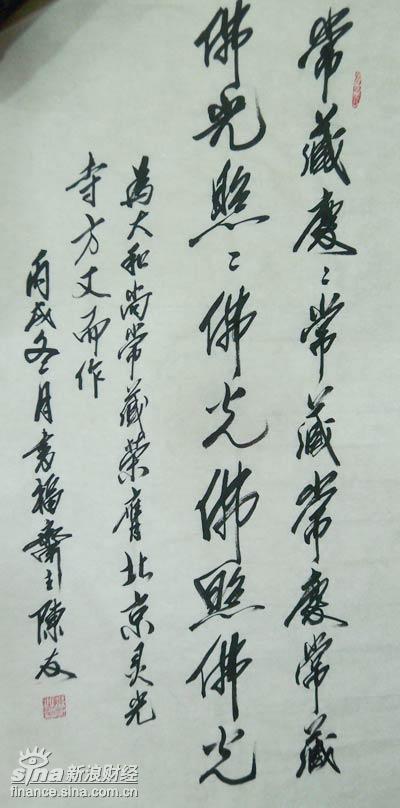 常藏慶〻常藏常慶常藏
佛光照〻佛光佛照佛光
為大和尚常藏榮膺北京灵光
寺方丈而作
丙戌冬月書福齋主陳友
sina 新浪财经
finance.sina.com.cn